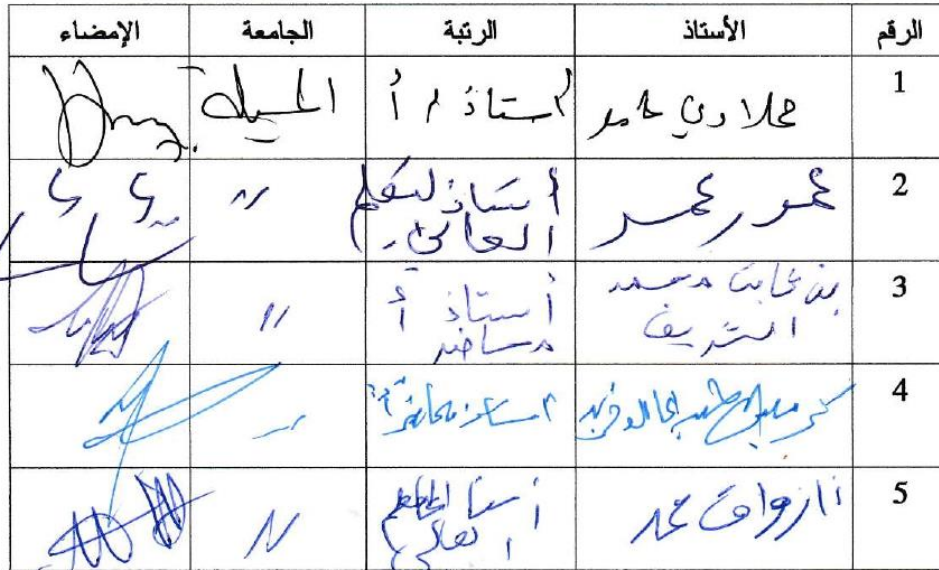 الرقم الأستاذ الرتبة الجامعة الإمضاء
1 حامد أستاذ م أ المسيلة
2 عمور عمر أستاذ التعليم العالي 〃
3 بن ثابت محمد الشريف أستاذ محاضر أ 〃
4 أستاذ محاضر أ 〃
5 محمد أستاذ التعليم العالي 〃